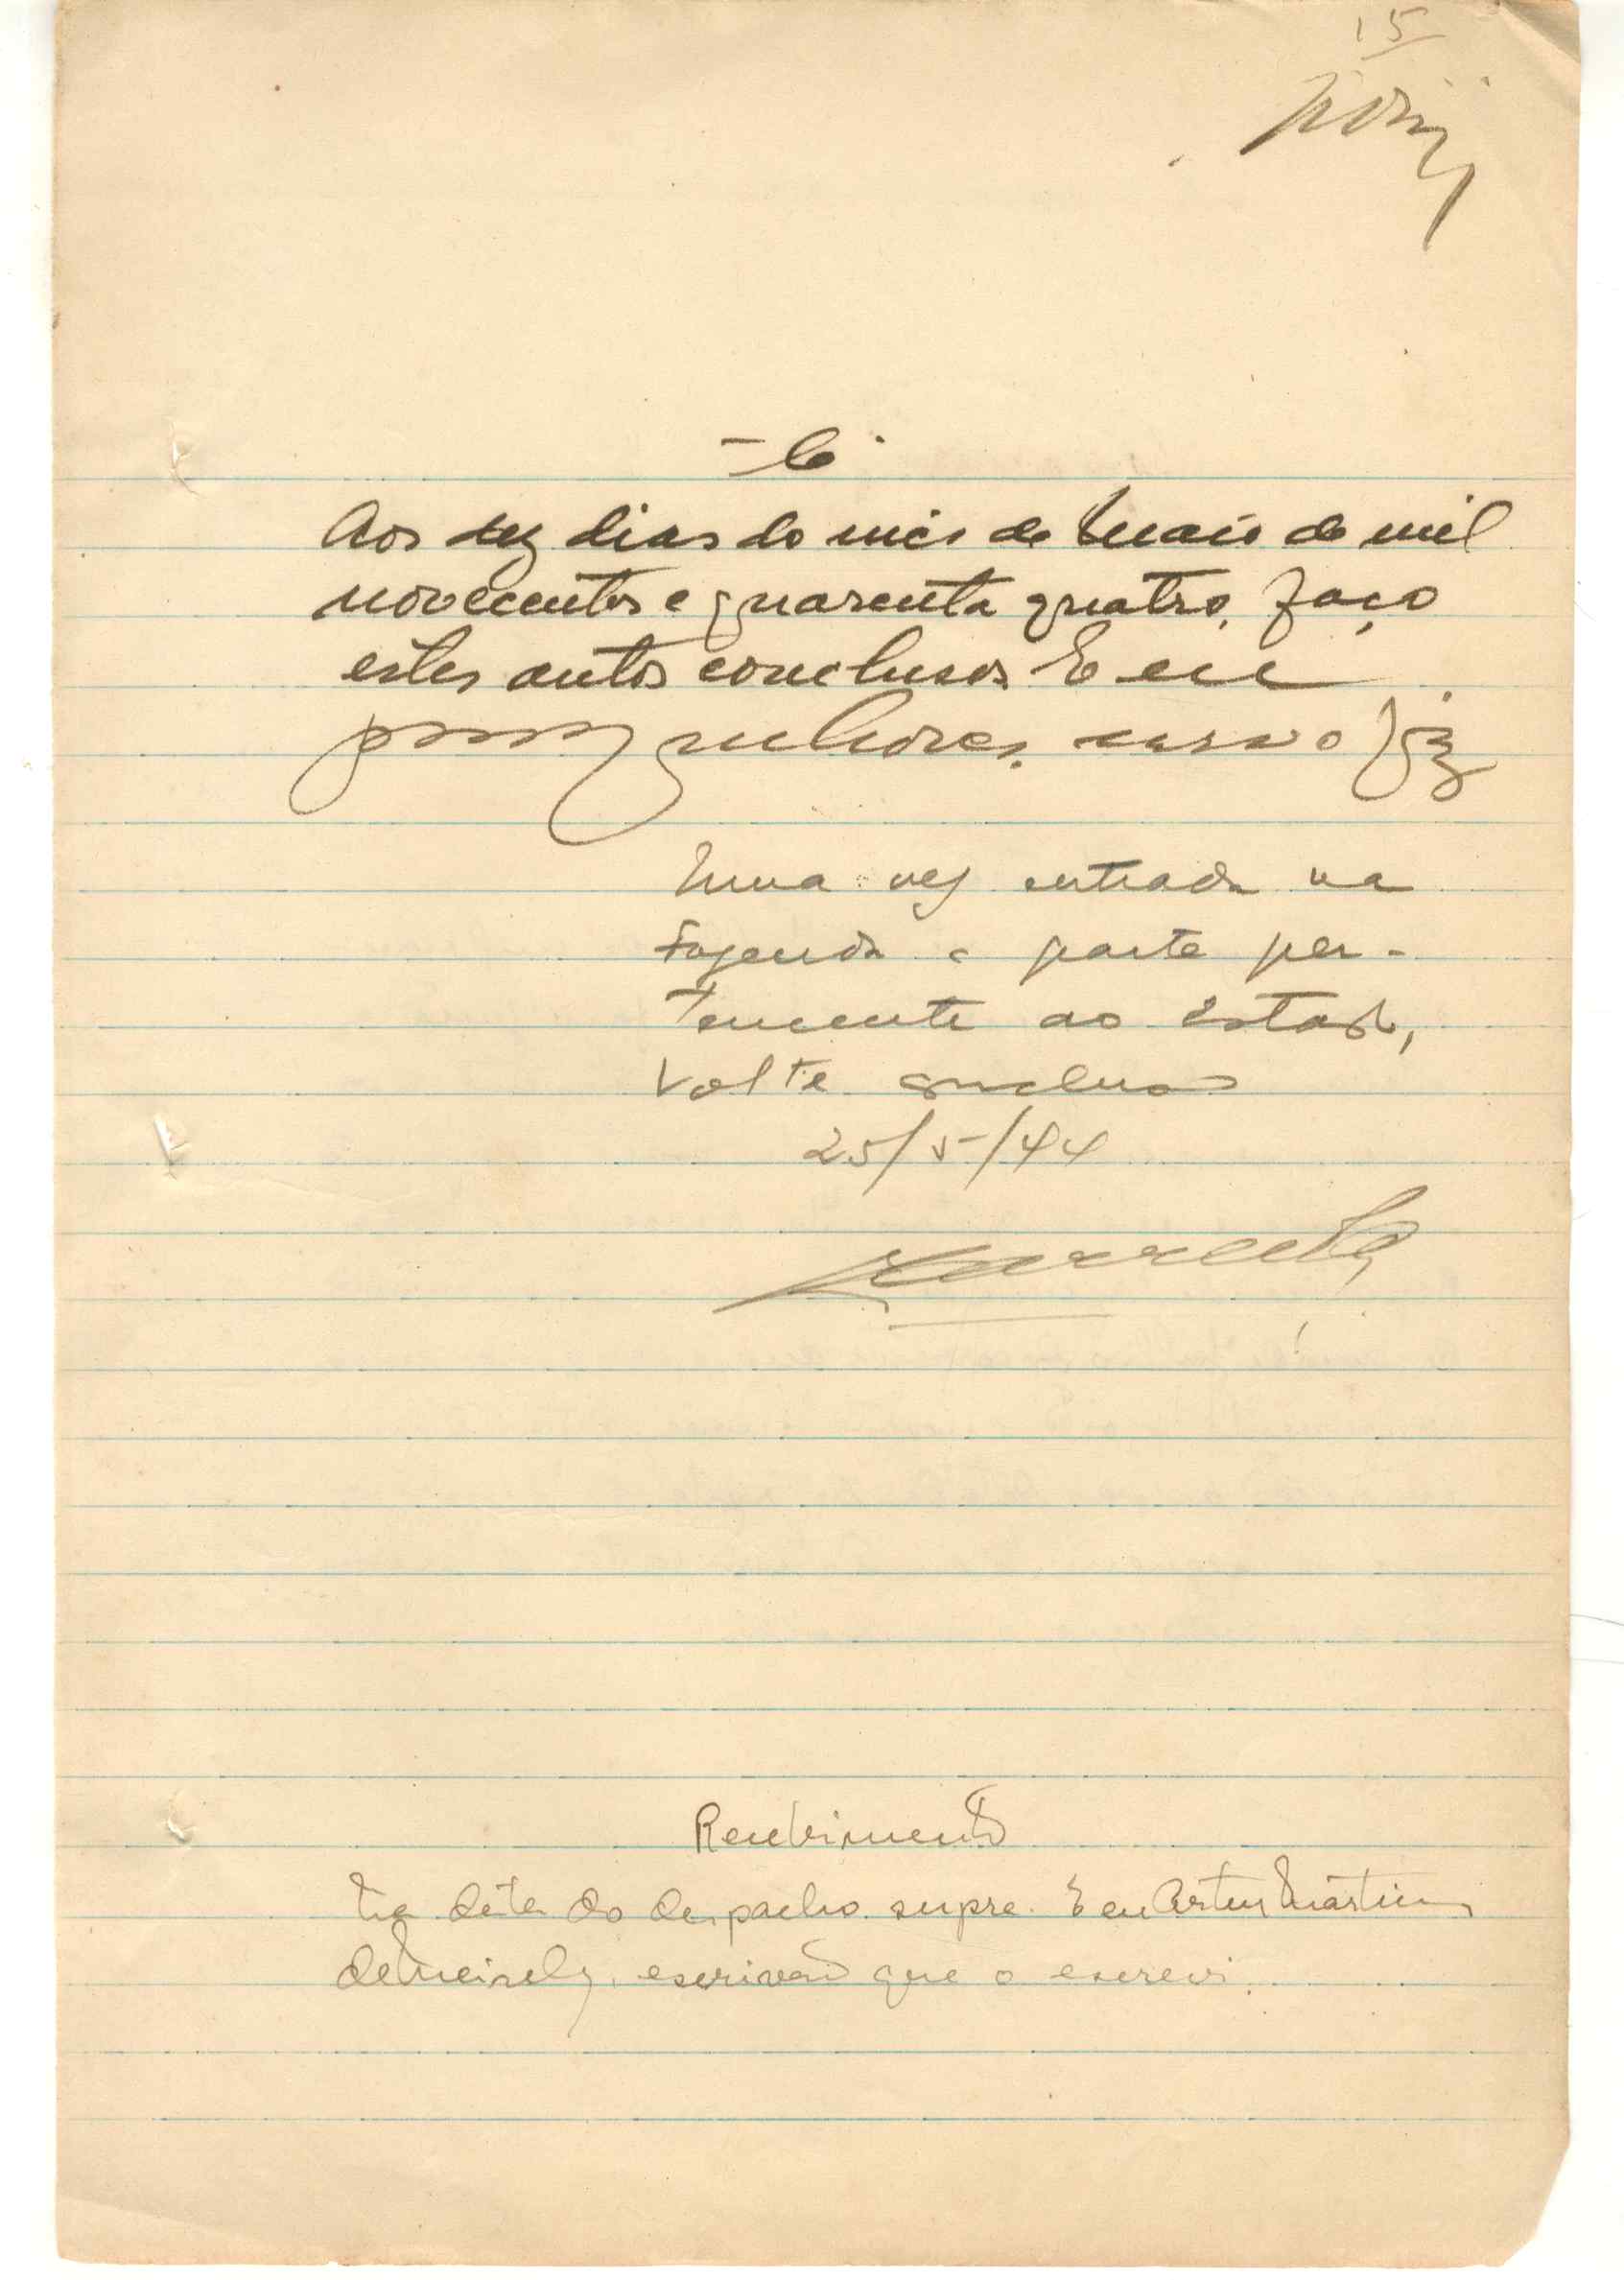 15
Aos dez dias do mês de Maio de mil
novecentos e quarenta quatro, faço
estes autos conclusos. E eu
o fiz
Uma vez entrada na
Fazenda a parte per-
tencente ao Estado,
Volte conclusos
25/5/44
Recebimento
Na data do despacho supra. E eu Artur Martins
de escrivão que o escrevi.